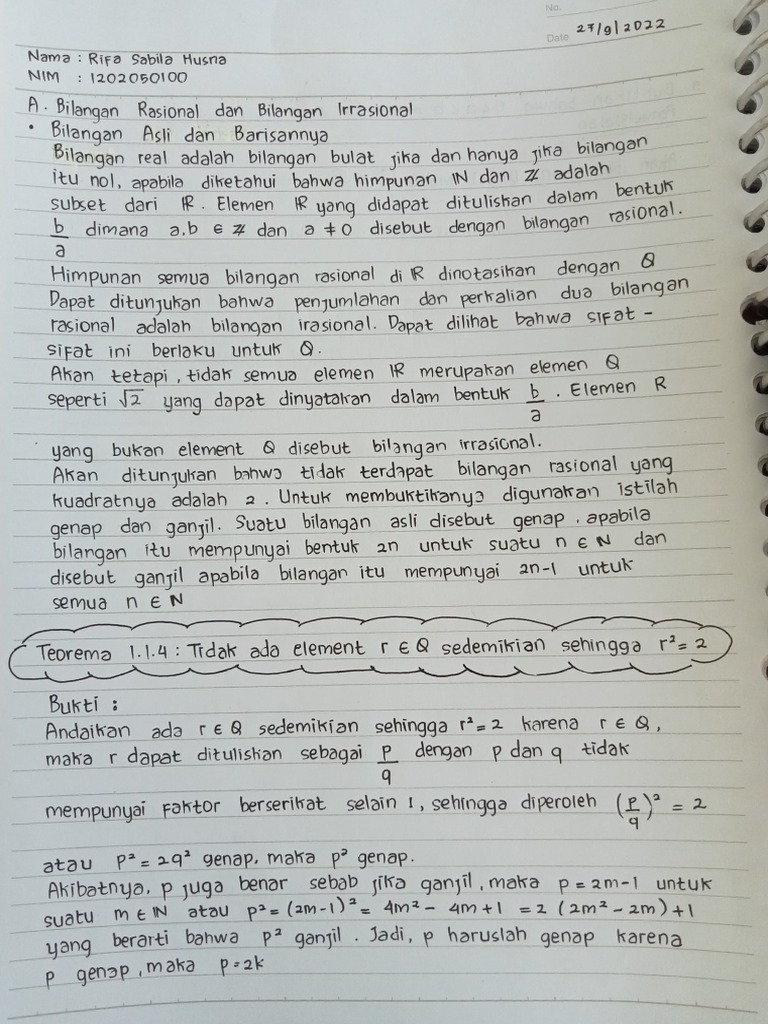 No.
Date 27/9/2022
Nama : Rifa Sabila Husna
NIM : 1202050100
A. Bilangan Rasional dan Bilangan Irrasional
• Bilangan Asli dan Barisannya
Bilangan real adalah bilangan bulat jika dan hanya jika bilangan
itu nol, apabila diketahui bahwa himpunan ℕ dan ℤ adalah
subset dari ℝ. Elemen ℝ yang didapat dituliskan dalam bentuk
b/a dimana a,b ∈ ℤ dan a ≠ 0 disebut dengan bilangan rasional.
Himpunan semua bilangan rasional di ℝ dinotasikan dengan Q
Dapat ditunjukan bahwa penjumlahan dan perkalian dua bilangan
rasional adalah bilangan irasional. Dapat dilihat bahwa sifat -
sifat ini berlaku untuk Q.
Akan tetapi, tidak semua elemen ℝ merupakan elemen Q
seperti √2 yang dapat dinyatakan dalam bentuk b/a. Elemen R
yang bukan element Q disebut bilangan irrasional.
Akan ditunjukan bahwa tidak terdapat bilangan rasional yang
kuadratnya adalah 2. Untuk membuktikanya digunakan istilah
genap dan ganjil. Suatu bilangan asli disebut genap, apabila
bilangan itu mempunyai bentuk 2n untuk suatu n ∈ N dan
disebut ganjil apabila bilangan itu mempunyai 2n-1 untuk
semua n ∈ N
Teorema 1.1.4 : Tidak ada element r ∈ Q sedemikian sehingga r² = 2
Bukti :
Andaikan ada r ∈ Q sedemikian sehingga r² = 2 karena r ∈ Q,
maka r dapat dituliskan sebagai p/q dengan p dan q tidak
mempunyai faktor berserikat selain 1, sehingga diperoleh (p/q)² = 2
atau p² = 2q² genap, maka p² genap.
Akibatnya, p juga benar sebab jika ganjil, maka p = 2m-1 untuk
suatu m ∈ ℕ atau p² = (2m-1)² = 4m² - 4m + 1 = 2 (2m² - 2m) + 1
yang berarti bahwa p² ganjil. Jadi, p haruslah genap karena
p genap, maka p = 2k